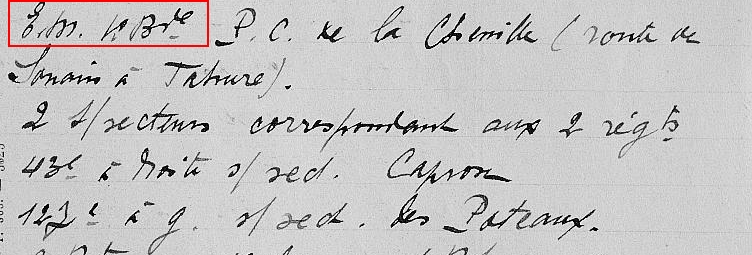 E.M. Bde P.C. de la Chenille (route de
Souain à Tahure).
2 s/secteurs correspondant aux 2 régts
43e à droite s/sect. Capron
127e à g. s/sect. des Poteaux.